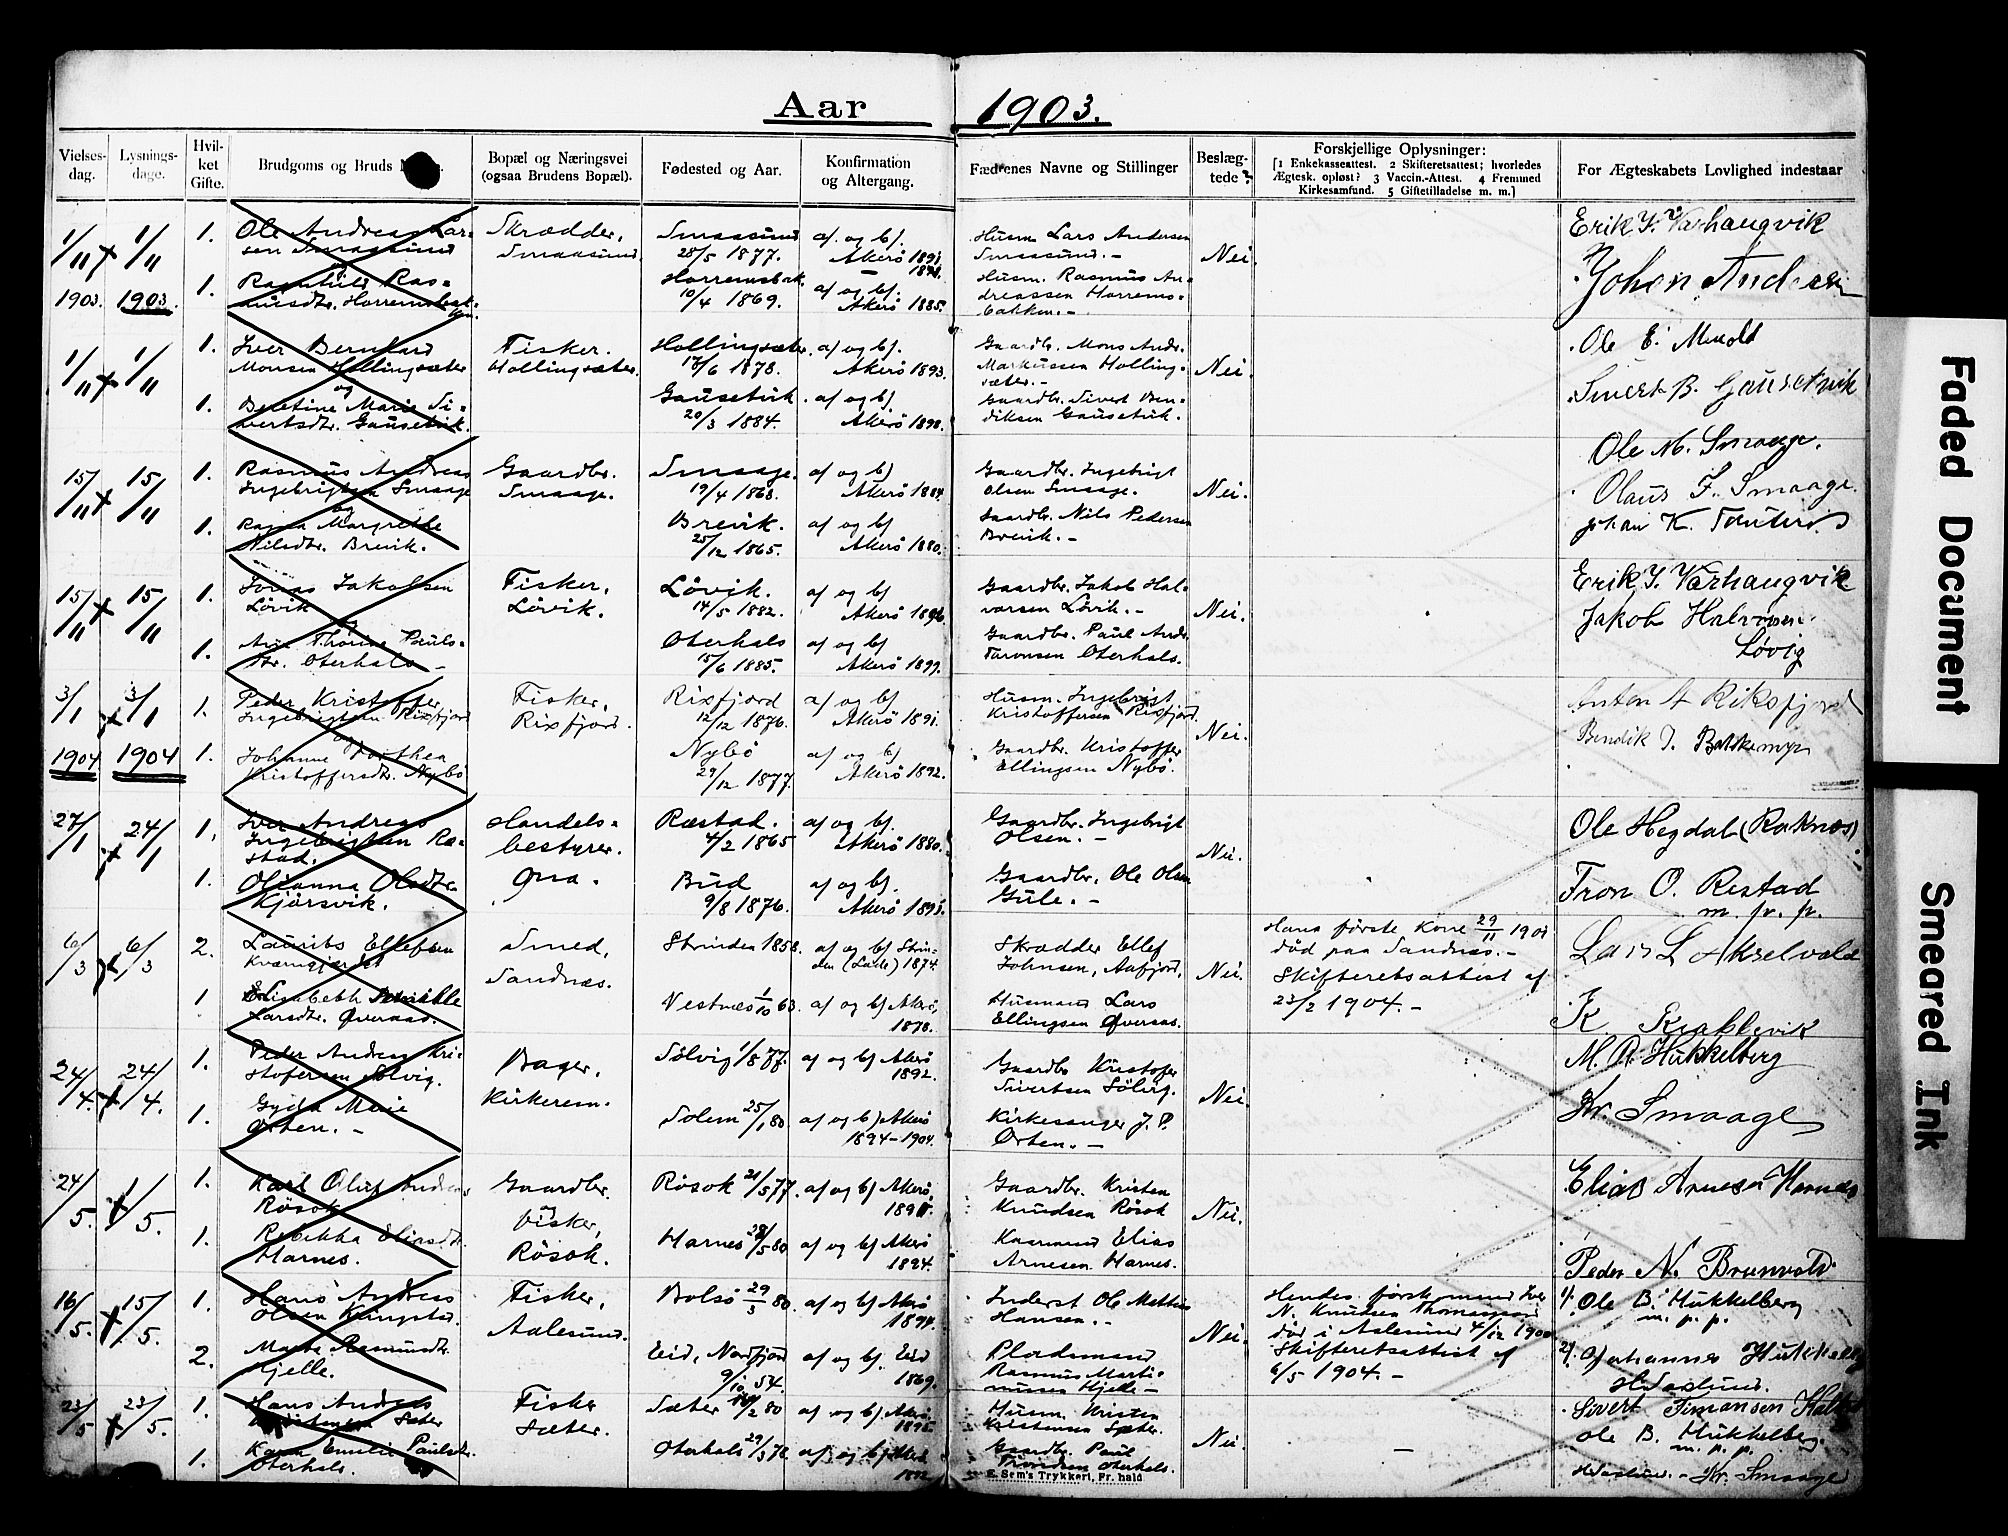 Aar 1903.
Vielses-dag.
Lysnings-dage.
Hvil-ket Gifte.
Brudgoms og Bruds
Bopæl og Næringsvei (ogsaa Brudens Bopæl).
Fødested og Aar.
Konfirmation og Altergang.
Fædrenes Navne og Stillinger
Beslæg-tede?
Forskjellige Oplysninger:
[1 Enkekasseattest. 2 Skifteretsattest; hvorledes
Ægtesk. opløst? 3 Vaccin.-Attest. 4 Fremmed
Kirkesamfund. 5 Giftetilladelse m. m.]
For Ægteskabets Lovlighed indestaar
1/11 1903.
1/11 1903.
1. Ole Andreas Lar-
sen Smaasund
Skrædder,
Smaasund.
Smaasund
28/5 1877.
af. og bf.
Akerö 1891.
Husm. Lars Andersen
Smaasund. -
Nei.
Erik Y. Varhaugvik
1. Ragnhild Ras-
musdtr. Harremsbak-
ken.
Horremsbak.
10/4 1869.
af og bf.
Akerö 1885.
Husm. Rasmus An-
dreassen Harrems-
bakken. -
Johan Andersen
1/11
1/11
1. Iver Bernhard
Monsen Hollingsæter
og
Fisker.
Hollingsæter.
Hollingsæter
17/6 1878.
af og bf.
Akerö 1893.
Gaardbr. Mons Andr.
Markussen Holling-
sæter. -
Nei.
Ole E. Mevold
1. Beretine Marie Si-
vertsdtr. Gausetvik.
Gausetvik
20/3 1884.
af og bf.
Akerö 1898.
Gaardbr. Sivert Ben-
diksen Gausetvik.
Sivert B. Gausetvik
15/11
15/11
1. Rasmus Andreas
Ingebrigtsen Smaage
og
Gaardbr.
Smaage.
Smaage.
19/4 1863.
af og bf
Akerö 1884.
Gaardbr. Ingebrigt
Olsen Smaage.
Nei.
Ole M. Smaage.
Olaus F. Smaage.
1. Ragna Margrethe
Nilsdtr. Breivik.
Breivik.
25/12 1865.
af og bf
Akerö 1880.
Gaardbr. Nils Pedersen
Breivik. -
15/11
15/11
1. Jonas Jakobsen
Lövik
Fisker,
Lövik.
Lövik.
14/5 1882.
af og bf
Akerö 1896.
Gaardbr. Jakob Hal-
varsen Lövik. -
Nei.
Erik Y. Varhaugvik
Jakob Halvorsen
Løvig
1. Ane Thorine Pauls-
dtr. Oterhals
Oterhals
15/6 1885.
af og bf
Akerö 1899.
Gaardbr. Paul Andr.
Taronsen Oterhals.
3/1 1904
3/1 1904
1. Peder Kristoffer
Ingebrigtsen Rixfjord
og
Fisker,
Rixfjord.
Rixfjord
12/12 1876.
af og bf
Akerö 1891.
Husm. Ingebrigt
Kristoffersen Rixfjord.
Nei.
Anton A Riksfjord
1. Johanne Dorthea
Kristoffersdtr. Nybö
Nybö
29/12 1877.
af og bf
Akerö 1892.
Gaardbr. Kristoffer
Ellingsen Nybö.
27/1
24/1
1. Iver Andreas
Ingebrigtsen Ræ-
stad.
Handels-
bestyrer.
Ona.
Ræstad.
4/2 1865
af og bf.
Akerö 1880.
Gaardbr. Ingebrigt
Olsen. -
Nei.
Ole Hegdal (Raknes)
1. Olianna Olsdtr.
Kjörsvik.
Bud
9/8 1876.
af og bf.
Akerö 1893.
Gaardbr. Ole Olsen
Gule. -
Tron O. Restad
m. p. p.
6/3
6/3
2. Laurits Ellefsen
Smed,
Sandnæs.
Strinden 1853.
af og bf Strin-
den (Lade) 1874.
Skrædder Ellef
Johnsen, Aafjord.
Nei.
Hans første Kone 29/11 190
död paa Sandnæs. -
Skifteretsattest af
23/2 1904. -
Lars L Akselvold
1 Elisabeth
Larsdtr. Øveraas.
Vestnæs 1/10 63.
af og bf Akerö,
1878.
Husmand Lars
Ellingsen Øveraas.
K
24/4.
24/4.
1. Peder Andreas Kri-
stofersen Sölvig.
Bager,
Kirkerem.
Sölvig 1/8 77.
af og bf Akerö
1892.
Gaardbr Kristofer
Sivertsen Sölvig.
Nei.
M. A. Hukkelberg
1. Gyda Marie
Orten. -
Solem 25/1 80.
af og bf Akerö
1894-1904.
Kirkesanger J. P.
Orten. -
Kr. Smaage
24/5.
1/5.
1. Karl Oluf Andreas
Rösok
Gaardbr.
Fisker,
Rösok.
Rösok 21/5 77
af og bf Akerö,
Gaardbr. Kristen
Knudsen Rösok
Nei.
Elias Arnesen Harnes
1. Rebekka Eliasdtr.
Harnes.
Harnes 28/5 80
af og bf Akerö
1894.
Kaarmand Elias
Arnesen Harnes.
Peder N. Brunvold
16/5.
15/5.
1. Hans Andreas
Olsen Kringstad.
Fisker,
Aalesund.
Bolsö 29/3 80.
af og bf Akerö
1894.
Inderst Ole Mattias
Hansen. -
Nei.
Hendes første mand Iver
N. Knudsen Thomasgaard
död i Aalesund 4/12 1900.
Skifteretsattest af
6/5 1904. -
1/. Ole B. Hukkelberg
m. p. p.
2. Marta Rasmusdtr.
Hjelle.
Eid, Nordfjord
9/10 54.
af og bf. Eid
1869.
Pladsmand
Rasmus Marti-
nusen Hjelle -
2/. Johannes Hukkelberg
23/5
23/5.
1. Hans Andreas
Kristensen Sæter
Fisker
Sæter.
Sæter /2 80
af og bf Akerö.
1895.
Husm. Kristen
Kristensen Sæter.
Nei.
-
Sivert Simonsen
Ole B. Hukkelberg.
m. p. p.
1. Karen Emilie Paulsdtr.
Oterhals.
Oterhals 29/3 78
af og bf Akerö
1892
Gaardbr. Paul
Oterhals.
Kr. Smaage
E. Sem's Trykkeri, Fr.hald
Faded Document
Smeared Ink